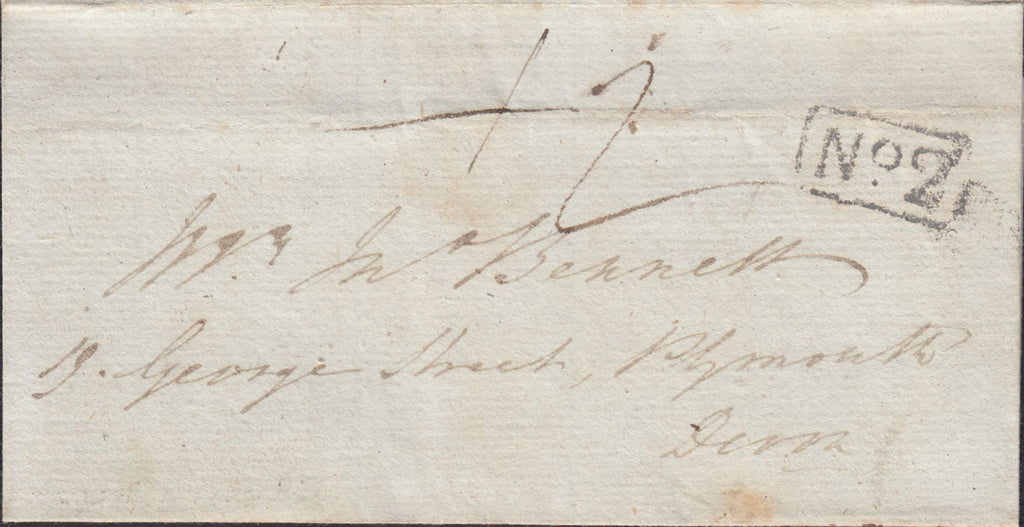 2
No. 2
Mr. Jno. Bennett
19. George Street, Plymouth
Devon